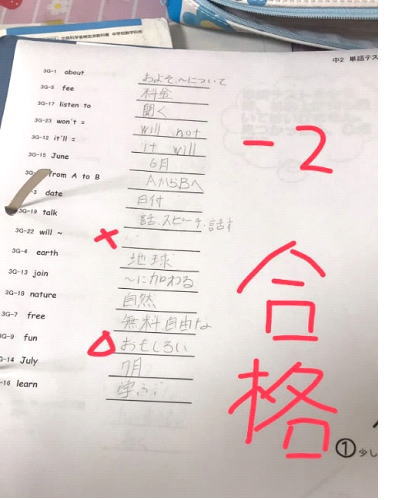 中2 単語テス
3G-1 about およそ、~について
3G-5 fee 料金
3G-17 listen to 聞く
3G-23 won't = will not
3G-12 it'll = it will
3G-15 June 6月
3G- from A to B AからBへ
3 date 日付
3G-19 talk 話、スピーチ、話す
3G-22 will ~
3G-4 earth 地球
3G-13 join ~に加わる
3G-18 nature 自然
3G-7 free 無料 自由な
G-9 fun おもしろい
-14 July 7月
-16 learn 学ぶ
-2
合格
① 少し